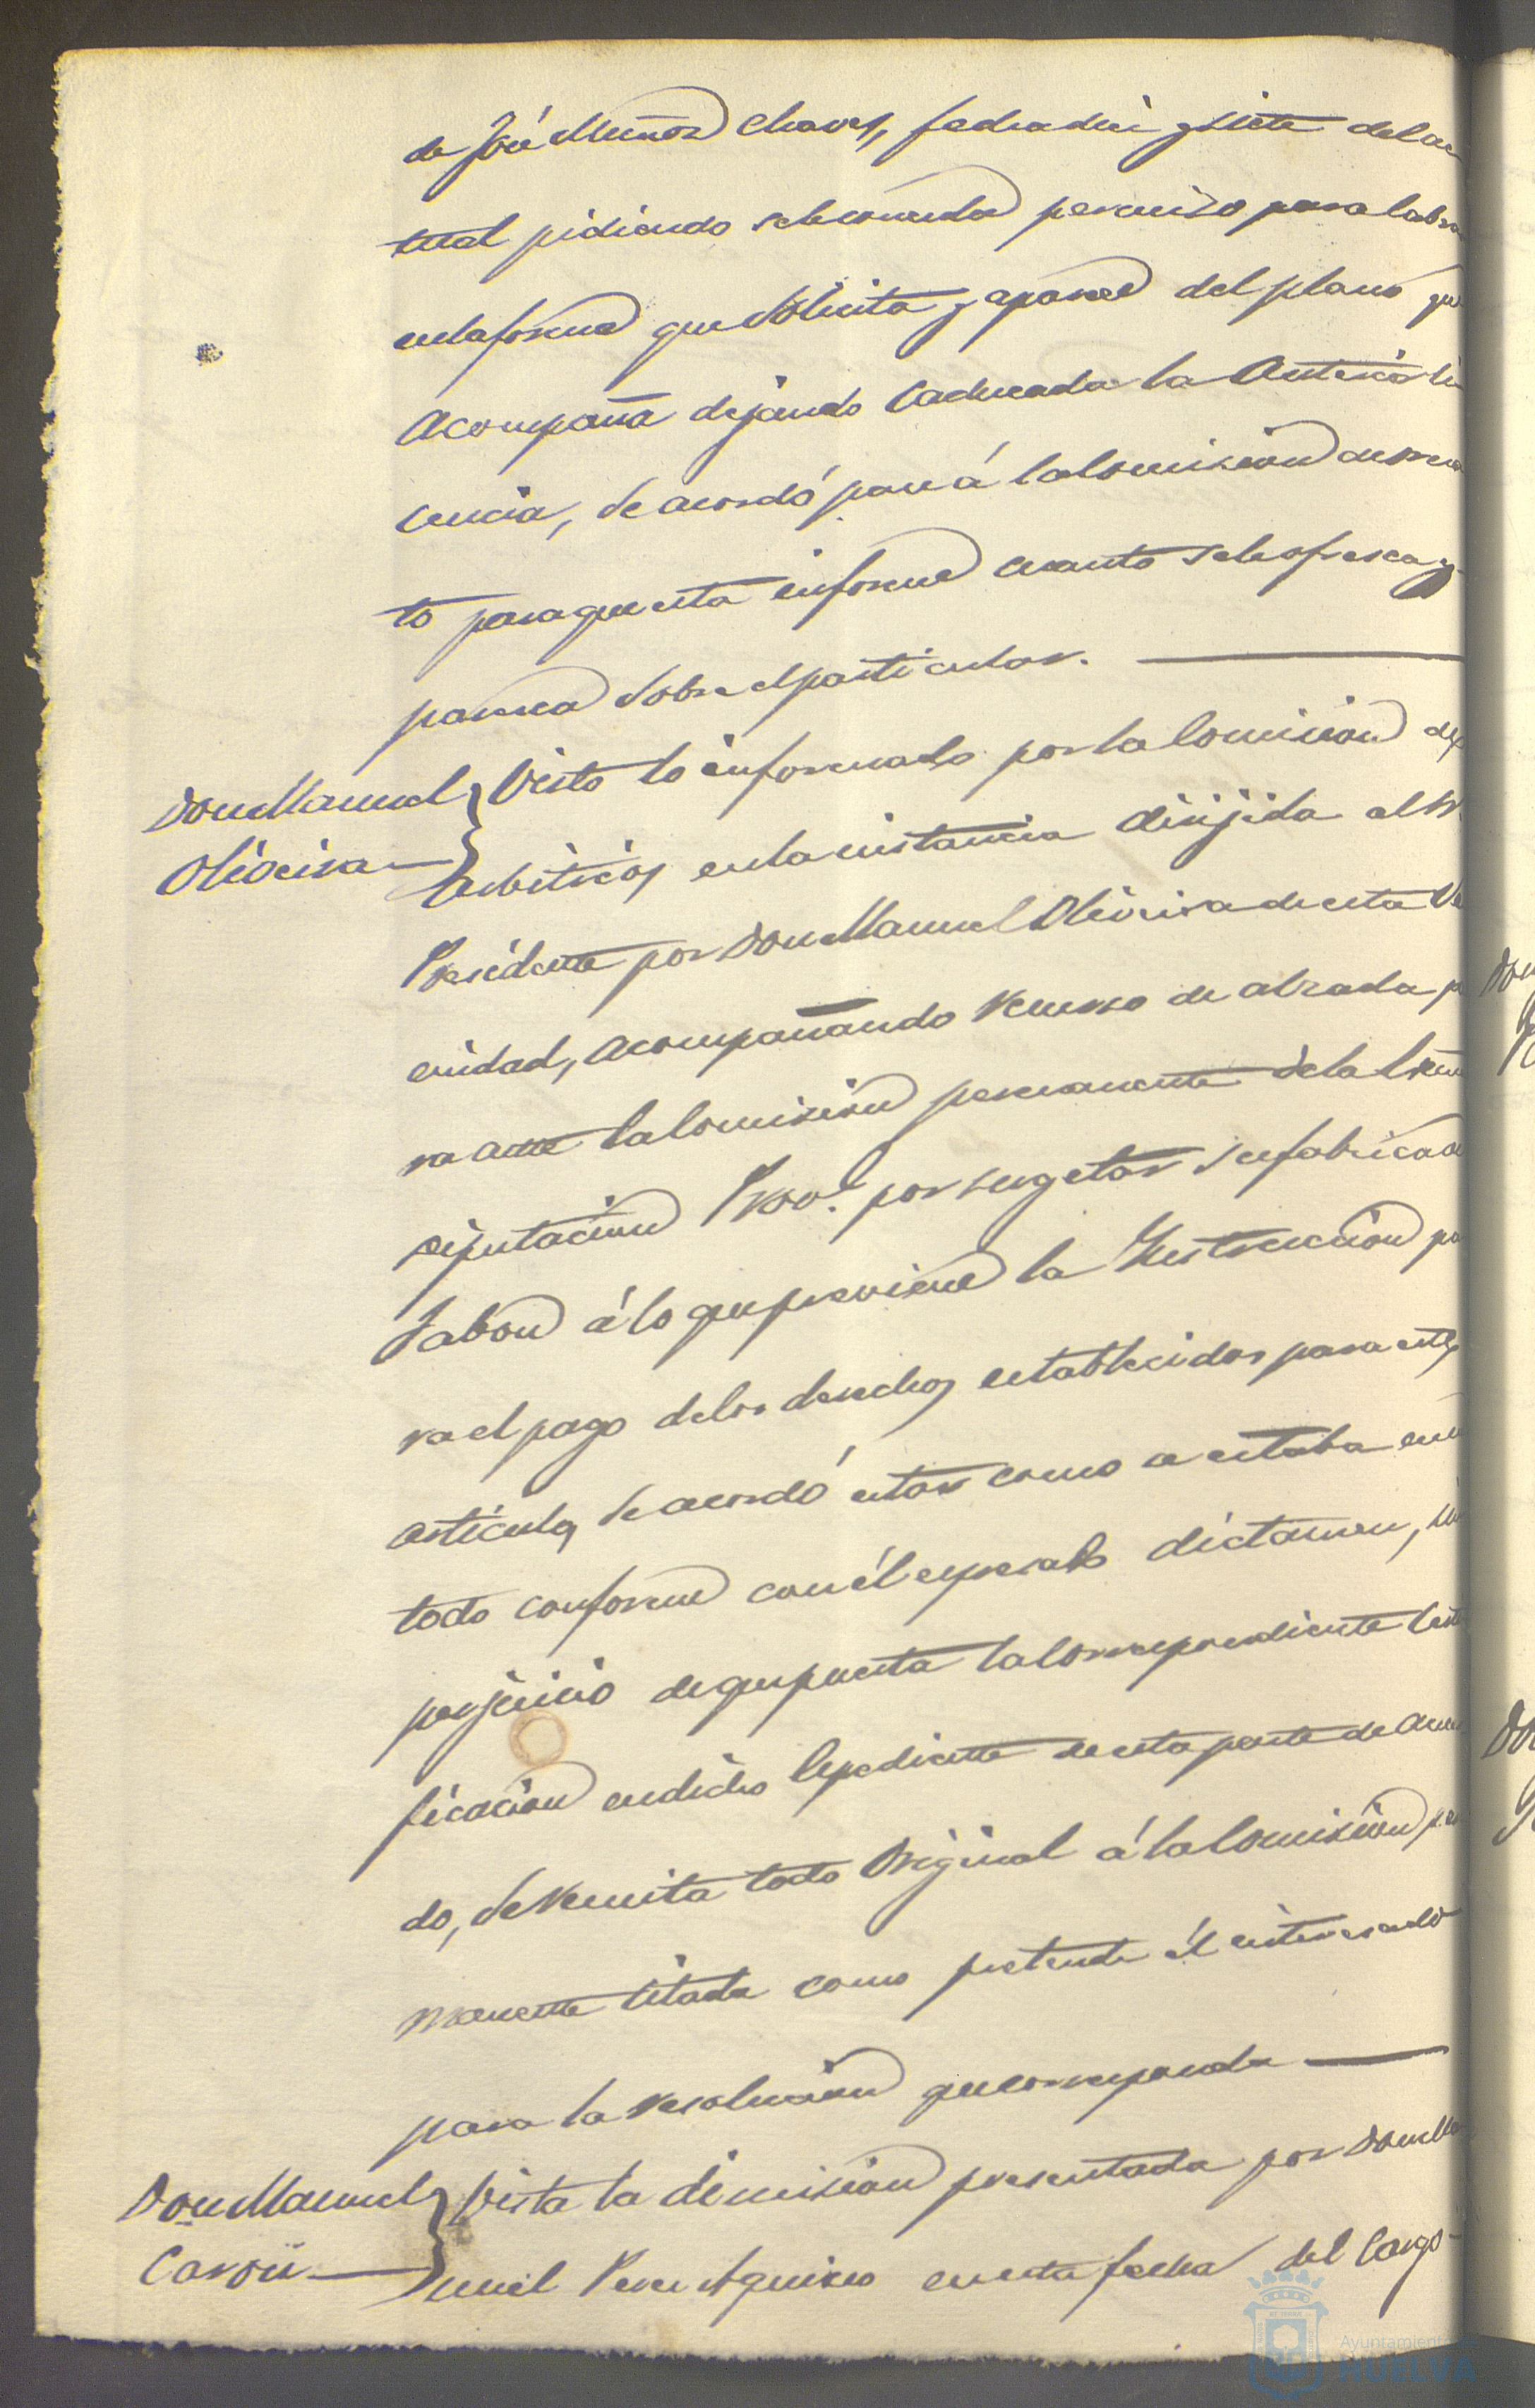 de José Muñoz Chaves, fecha diez y siete del ac
tual pidiendo se le conceda permiso para labra
en la forma que solicita y aparece del plano que
acompaña dejando caducada la anterior li
cencia, se acordó pase á la Comision de orna
to para que esta informe cuanto se le ofresca y
paresca sobre el particular.
Don Manuel
Oliveira
Visto lo informado por la Comision de
Arbitrios en la instancia dirijida al Sr.
Presidente por Don Manuel Oliveira de esta Ve
cindad, acompañando recurso de alzada pa
ra ante la Comision permanente de la Excma
Diputacion Prov.l por sugetar su fabrica de
Jabon á lo que previene la Instruccion pa
ra el pago de los derechos establecidos para este
articulo, se acordó estar como se estaba en un
todo conforme con él espresado dictamen, sin
perjuicio de que puesta la Correspondiente Certi
ficacion en dicho Expediente de esta parte de acuer
do, se remita todo Original á la Comision per
manente citada como pretende él interesado
para la resolucion que corresponda
Don Manuel
Vista la dimision presentada por Don Ma
nuel Perez Aquino en esta fecha del Cargo
Don
Ayuntamiento de
HUELVA